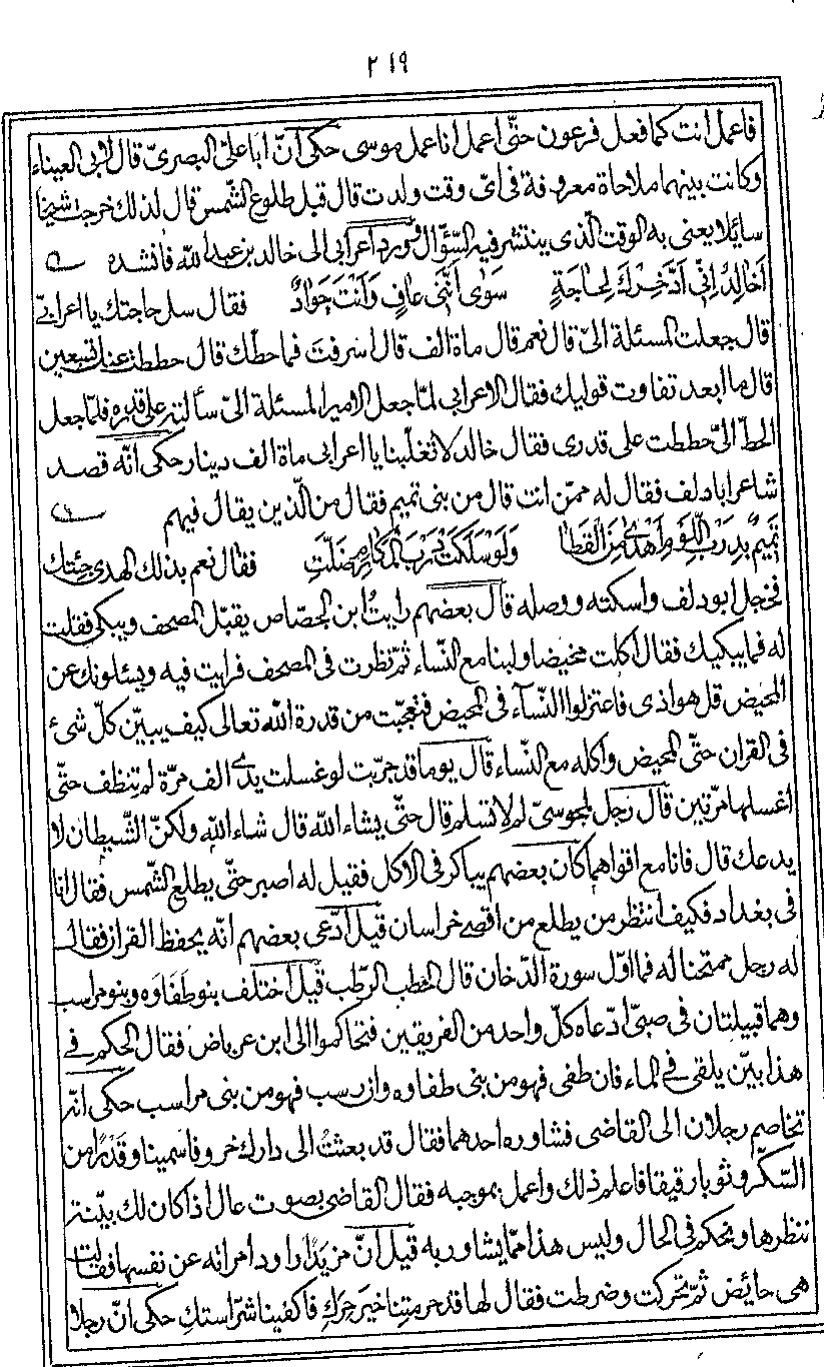 ٢١٩
فاعمل انت كما فعل فرعون حتّى اعمل انا عمل موسى حكى انّ ابا علىّ البصرىّ قال لابى العيناء
وكانت بينهما ملاحاة معروفة فى اىّ وقت ولدت قال قبل طلوع الشّمس قال لذلك خرجت شيخا
سايلا يعنى به الوقت الّذى ينتشر فيه السّؤّال فورد اعرابى الى خالد بن عبد الله فانشده
اَخالِدُ اِنّى اَدَّخِرْكَ لِحاجَةٍ سَوٰى اَنَّنى عافٍ وَاَنْتَ جَوادٌ فقال سل حاجتك يا اعرابىّ
قال جعلت المسئلة الىّ قال نعم قال ماة الف قال اسرفت فما حطّك قال حططت عنك تسعين
قال ما ابعد تفاوت قوليك فقال الاعرابى لمّا جعل الامير المسئلة الىّ سألته على قدره فلمّا جعل
الحطّ الىّ حططت على قدرى فقال خالد لا تغلّبنا يا اعرابى ماة الف دينار حكى انّه قصد
شاعر ابا دلف فقال له ممّن انت قال من بنى تميم فقال من الّذين يقال فيهم
تَميمٌ بِدَرْبِ اللُّؤْمِ اَهْدىٰ مِنَ القَطا وَلَوْ سَلَكَتْ دَرْبَ المَكارِمِ ضَلَّتِ فقال نعم بذلك الهدى جئتك
فخجل ابو دلف واسكته ووصله قال بعضهم رايتُ ابن الجصّاص يقبّل المصحف ويبكى فقلت
له فما يبكيك فقال اكلت مخيضا ولبنا مع النّساء ثمّ نظرت فى المصحف فرايت فيه ويسئلونك عن
المحيض قل هو اذى فاعتزلوا النّسآء فى المحيض فتعجّبت من قدرة الله تعالى كيف يبيّن كلّ شىء
فى القران حتّى المحيض واكله مع النّساء قال يوما قد جرّبت لو غسلت يدى الف مرّة لم تنظف حتّى
اغسلها مرّتين قال رجل لمجوسىّ لم لا تسلم قال حتّى يشاء الله قال شاء الله ولكنّ الشّيطان لا
يدعك قال فانا مع اقواهما كان بعضهم يباكر فى الاكل فقيل له اصبر حتّى يطلع الشّمس فقال انا
فى بغداد فكيف انتظر من يطلع من اقصى خراسان قيل ادّعى بعضهم انّه يحفظ القران فقال
له رجل ممتحنا له فما اوّل سورة الدّخان قال الحطب الرّطب قيل اختلف بنو طفاوه وبنو مراسب
وهما قبيلتان فى صبىّ ادّعاه كلّ واحد من الفريقين فتحاكموا الى ابن عرباض فقال الحكم فى
هذا بيّن يلقى فى الماء فان طفى فهو من بنى طفاوه وان رسب فهو من بنى مراسب حكى انّه
تخاصم رجلان الى القاضى فشاوره احدهما فقال قد بعثتُ الى دارك خروفا سمينا وقدرًا من
السّكّر وثوبا رقيقا فاعلم ذلك واعمل بموجبه فقال القاضى بصوت عال اذا كان لك بيّنة
ننظرها ويحكم فى الحال وليس هذا ممّا يشاور به قيل انّ مزيدًا راود امراته عن نفسها فقالت
هى حايض ثمّ تحرّكت وضرطت فقال لها قد حرمتِنا خيرَ حِركِ فاكفينا شرّ استكِ حكى انّ رجلا